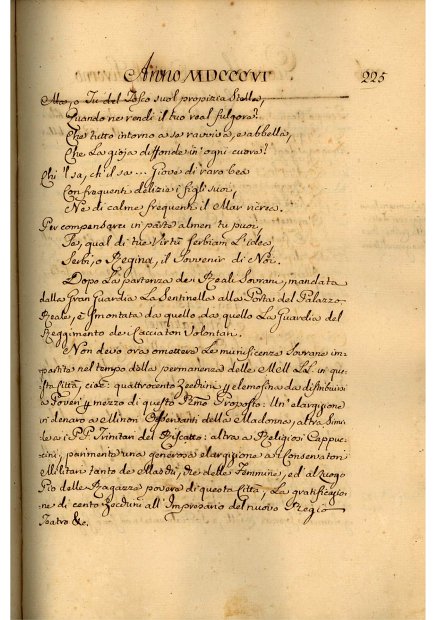 Anno MDCCCVI
225
Ma, o Tu del Tosco suol propizia Stella,
Quando ne rendi il tuo real fulgore?
Che tutto intorno a se ravviva, e abbella,
Che La gioja diffonde in ogni cuore?
Chi 'l sa, ch'il sa ... Giove di rara bea
Con frequenti delizie i figli suoi,
Ne di calme frequenti il Mar ricrea.
Per compensarci in parte almen tu puoi,
Se, qual di tue Virtù serbiam L'idea,
Serbi, o Regina, il Sovvenir di Noi.
Dopo La partenza de Reali Sovrani, mandata
dalla Gran Guardia La Sentinella alla Porta del Palazzo
Reale, è smontata da quello da quello La Guardia del
Reggimento de Cacciatori Volontari.
Non devo ora omettere Le munificenze Sovrane im-
partite nel tempo della permanenza delle MM. LL. in que-
sta Città, cioè: quattrocento Zecchini elemosina da distribuirsi
a Poveri mezzo di questo Proposto: Un' elargizione
in denaro a Minori Osservanti della Madonna, altra Simi-
le a i PP. Trinitari del Riscatto: altra a Religiosi Cappuc-
cini, parimente una generosa elargizione a Conservatori
Militari tanto de Maschi, che delle Femmine, ed al Luogo
Pio delle Ragazze povere di questa Città, La gratificazio-
ne di cento Zecchini all' Impresario del nuovo Regio
Teatro &c.